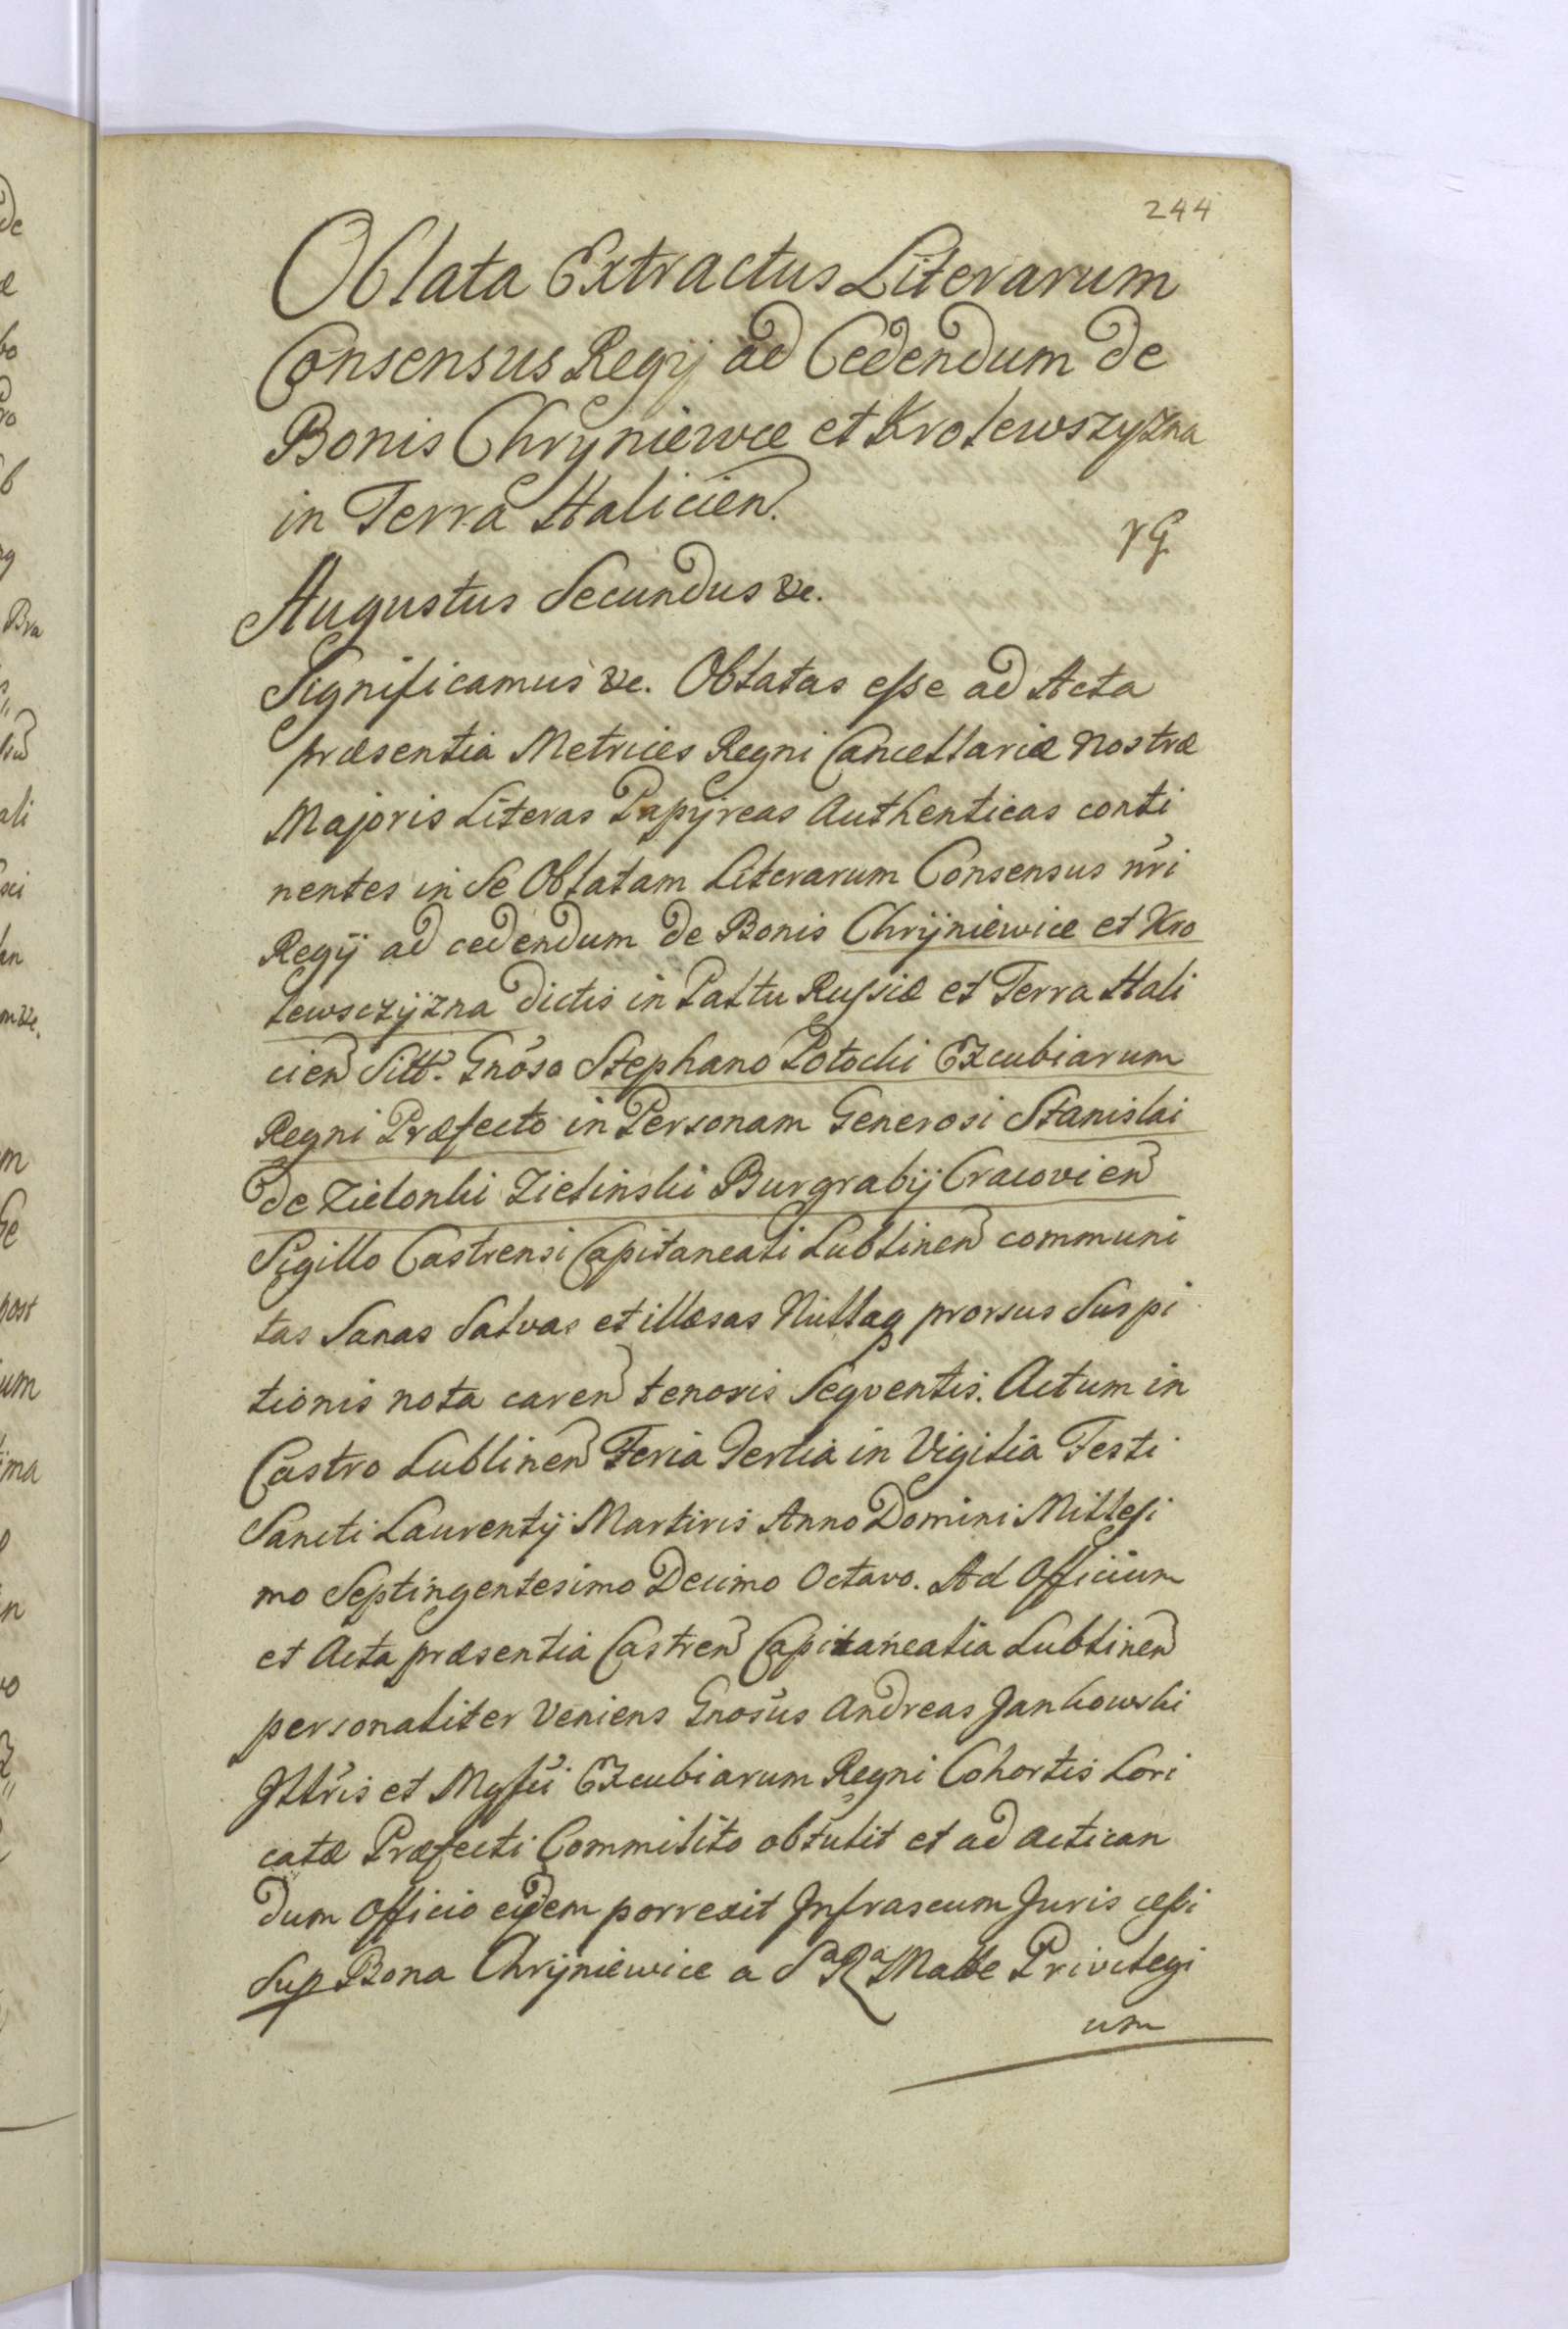 244
Oblata Extractus Literarum
Consensus Regij ad Cedendum de
Bonis Chryniewce et Krolewszyzna
in Terra Halicien.
Augustus Secundus &c.
Significamus &c. Oblatas esse ad Acta
præsentia Metrices Regni Cancellariæ Nostræ
Majoris Literas Papyreas Authenticas conti
nentes in se Oblatam Literarum Consensus nri
Regij ad cedendum de Bonis Chrijniewice et Kro
lewsczyzna dictis in Palltu Russiæ et Terra Hali
cien Sitt. Gnoso Stephano Potocki Excubiarum
Regni Præfecto in Personam Generosi Stanislai
de Zielonki Zielinski Burgrabij Cracovien
Sigillo Castrensi Capitaneali Lublinen communi
tas Sanas Salvas et illæsas Nullaq prorsus Suspi
tionis nota caren tenoris Seqventis. Actum in
Castro Lublinen Feria Tertia in Vigilia Festi
Sancti Laurentij Martiris Anno Domini Millesi
mo Septingentesimo Decimo Octavo. Ad Officium
et Acta præsentia Castren Capitanealia Lublinen
personaliter Veniens Gnosus Andreas Jankowski
Illris et Mgfci Excubiarum Regni Cohortis Lori
catæ Præfecti Commilito obtulit et ad actican
dum Officio eidem porrexit Infrascum Juris cessi
Sup Bona Chrijniewice a Sa Ra Matte Privilegi
um